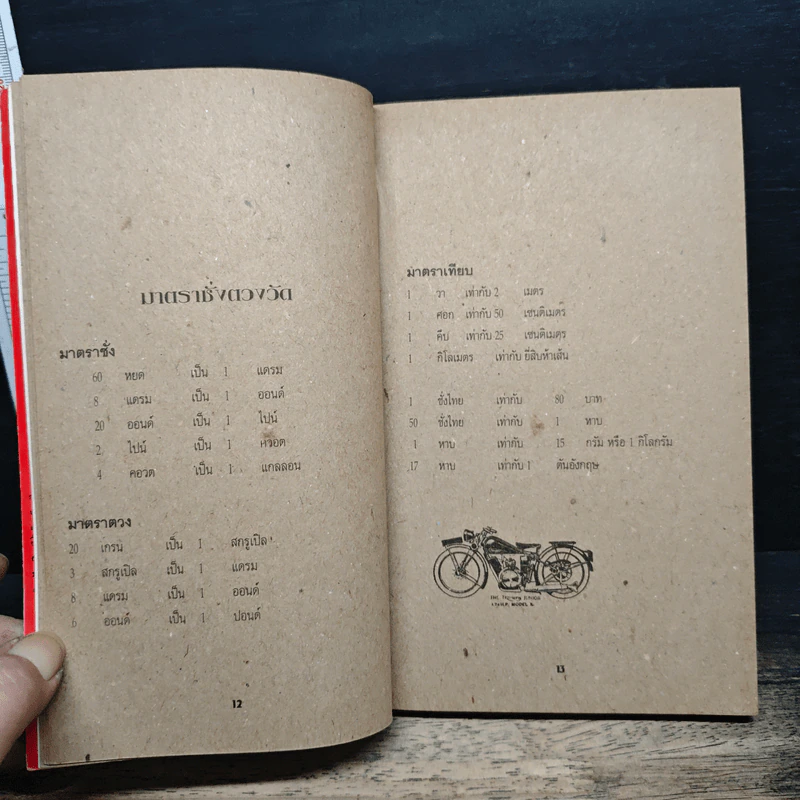 มาตราชั่งตวงวัด
มาตราชั่ง
60 หยด เป็น 1 แดรม
8 แดรม เป็น 1 ออนด์
20 ออนด์ เป็น 1 ไปน์
2 ไปน์ เป็น 1 ควอต
4 คอวต เป็น 1 แกลลอน
มาตราตวง
20 เกรน เป็น 1 สกรูเปิล
3 สกรูเปิล เป็น 1 แดรม
8 แดรม เป็น 1 ออนด์
6 ออนด์ เป็น 1 ปอนด์
12
มาตราเทียบ
1 วา เท่ากับ 2 เมตร
1 ศอก เท่ากับ 50 เซนติเมตร
1 คืบ เท่ากับ 25 เซนติเมตร
1 กิโลเมตร เท่ากับ ยี่สิบห้าเส้น
1 ชั่งไทย เท่ากับ 80 บาท
50 ชั่งไทย เท่ากับ 1 หาบ
1 หาบ เท่ากับ 15 กรัม หรือ 1 กิโลกรัม
17 หาบ เท่ากับ 1 ตันอังกฤษ
13